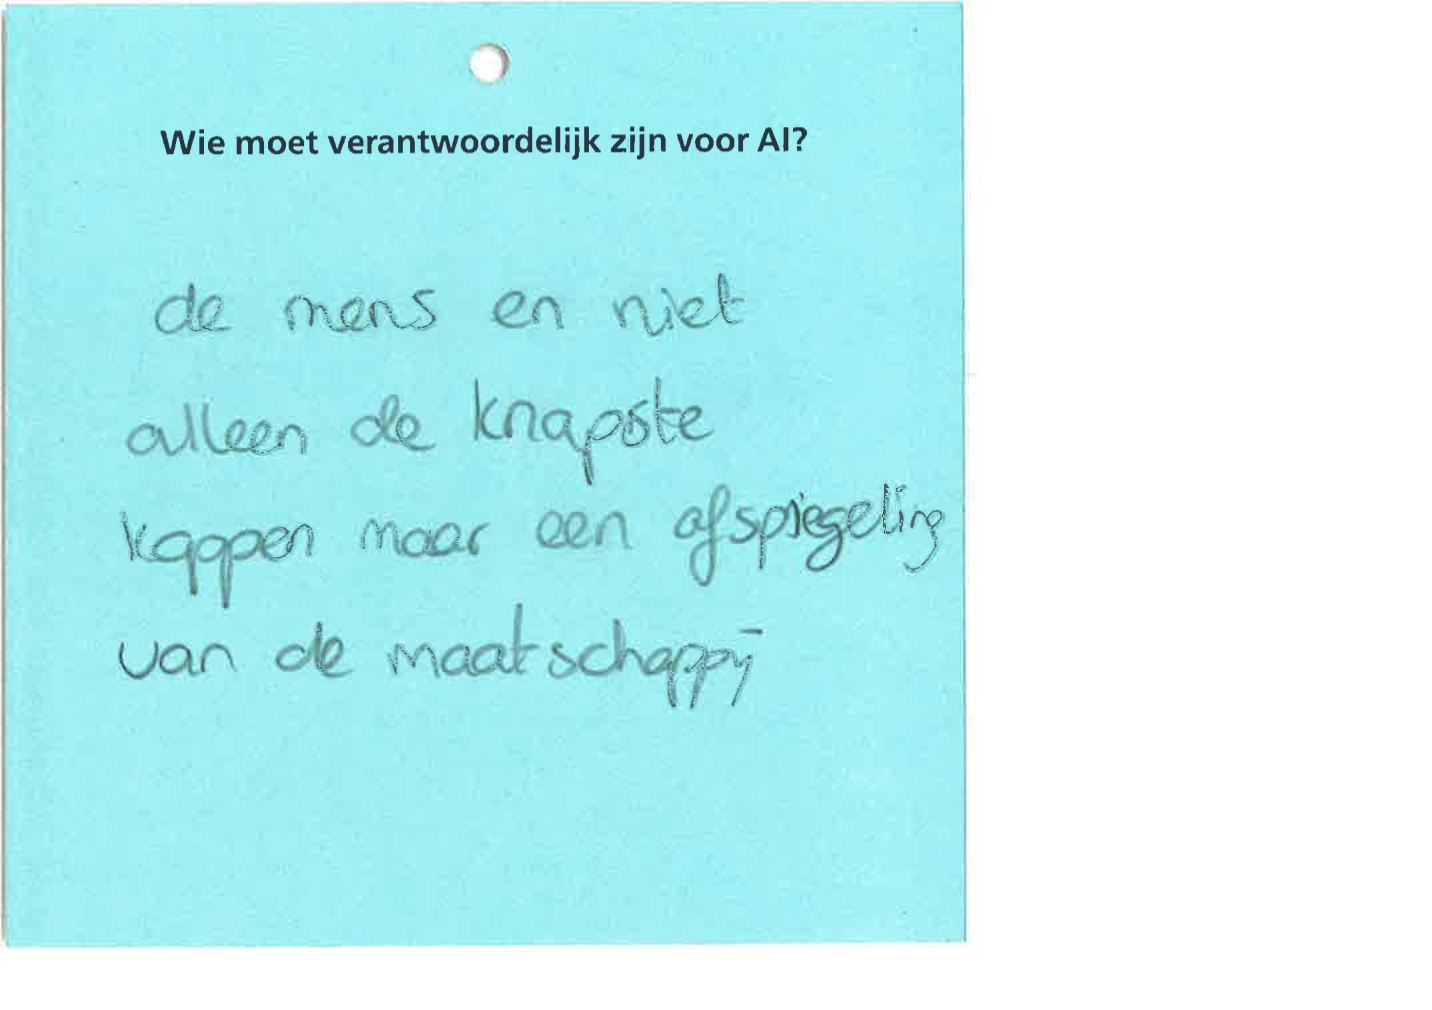 Wie moet verantwoordelijk zijn voor AI?
de mens en niet
alleen de knapste
koppen maar een afspiegeling
van de maatschappij